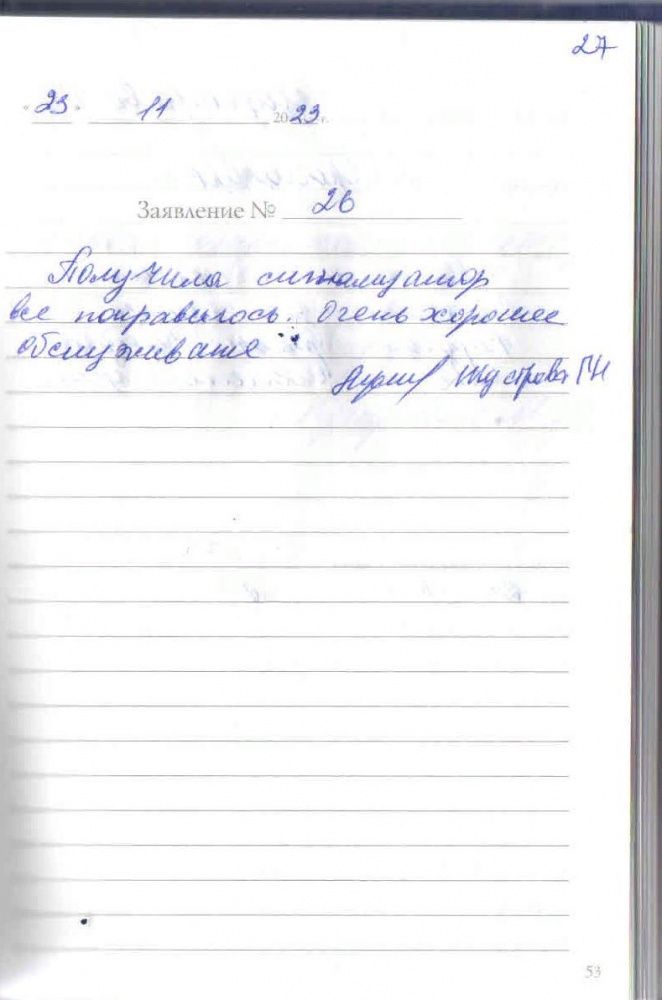 27
"23" 11 2023 г.
Заявление № 26
Получила сигнализатор
все понравилось. Очень хорошее
обслуживание
ГН
53